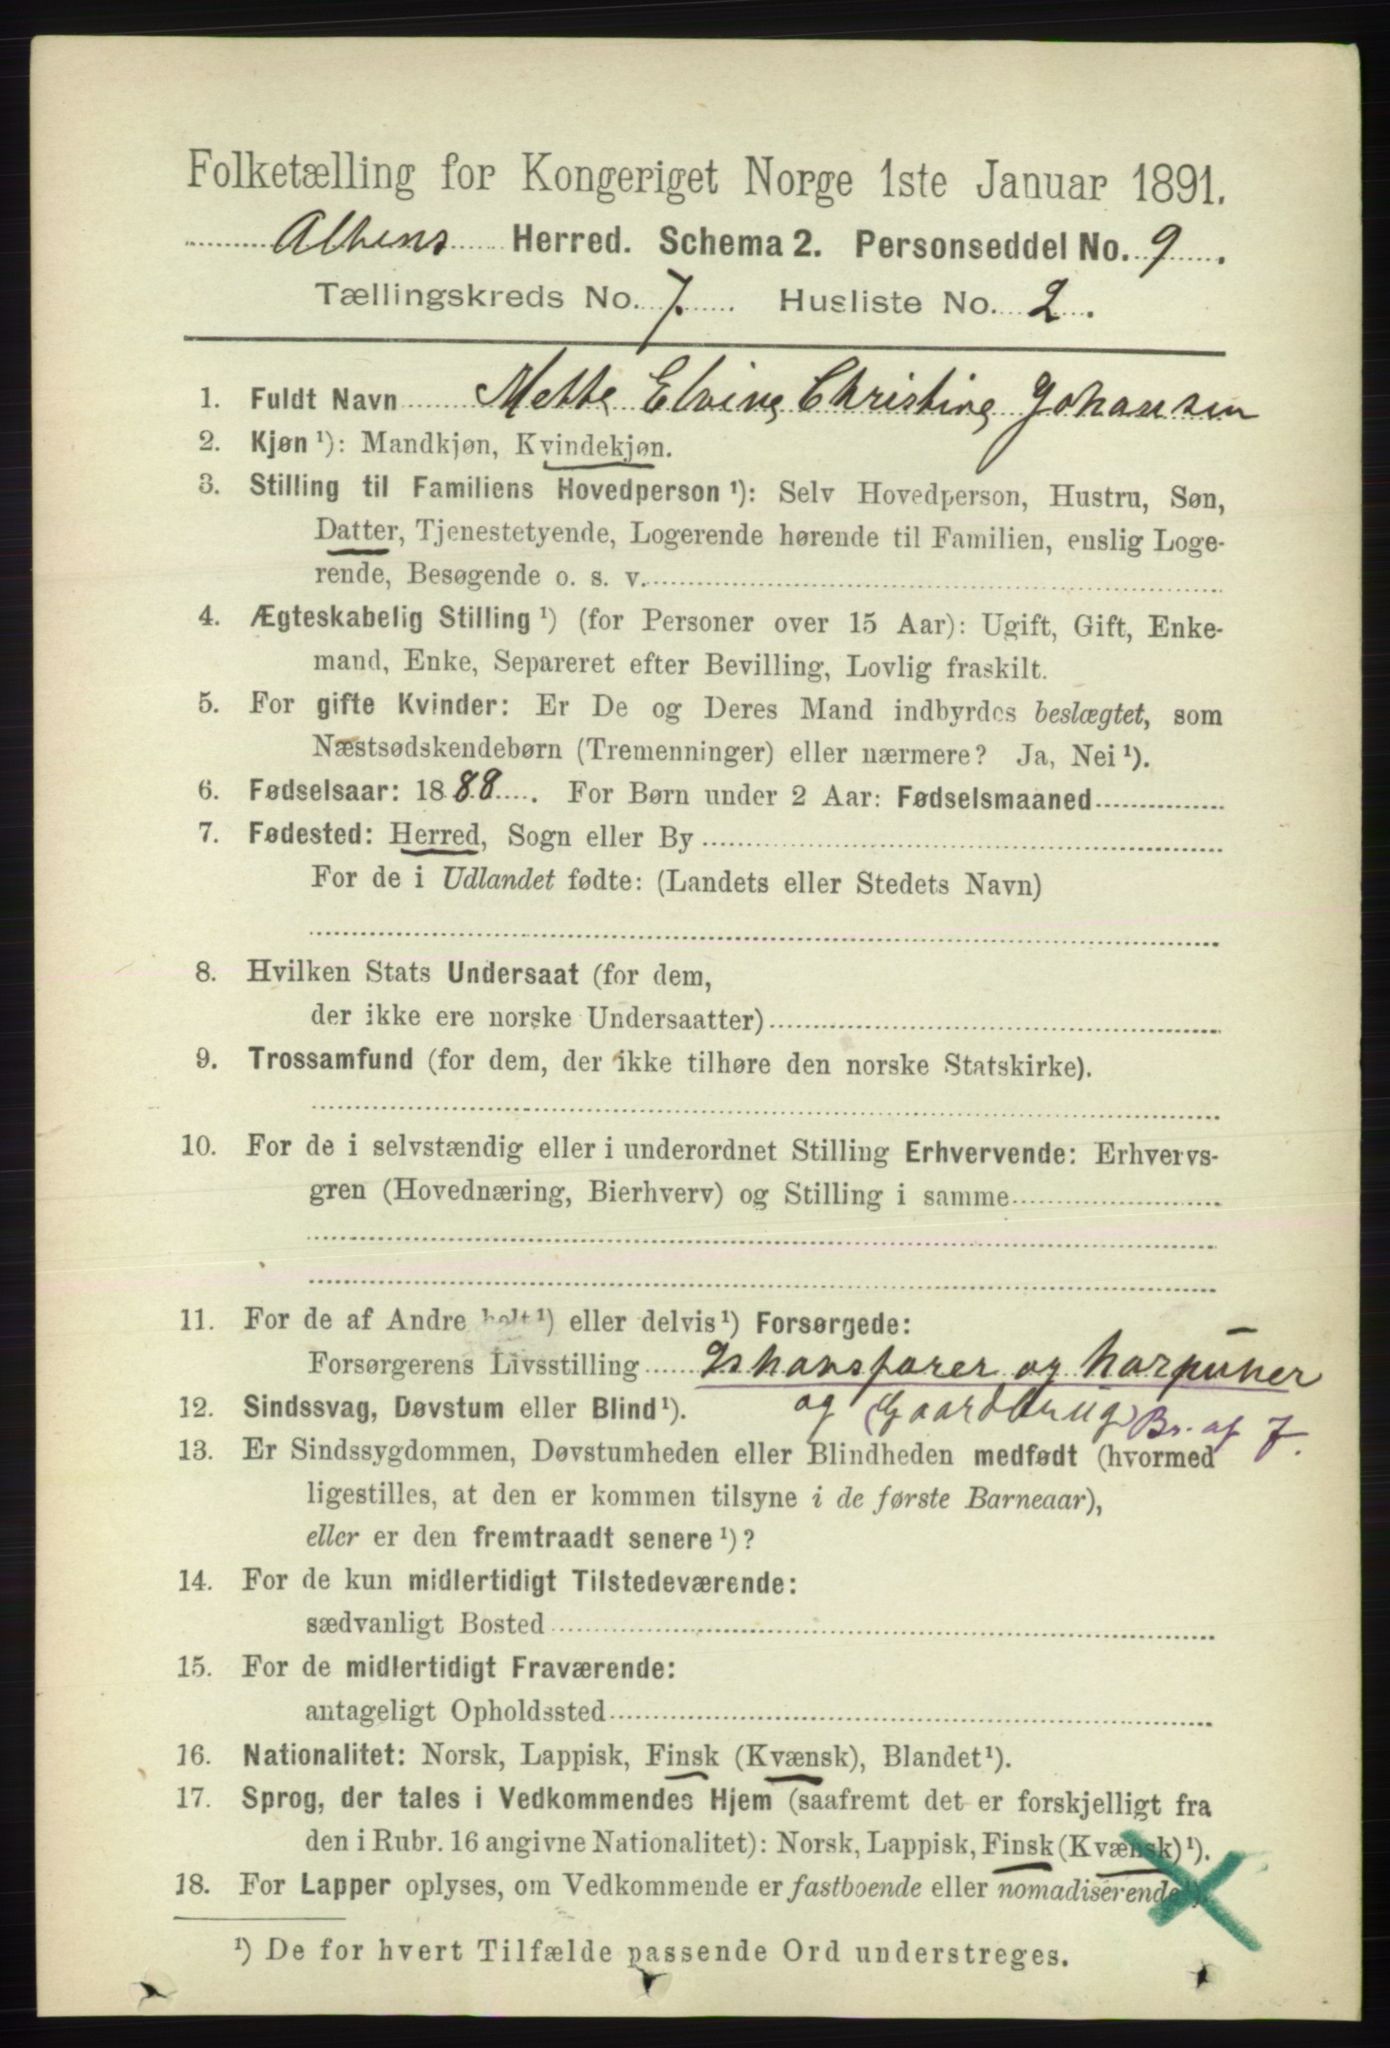 Folketælling for Kongeriget Norge 1ste Januar 1891.
Altens Herred. Schema 2. Personseddel No. 9.
Tællingskreds No. 7. Husliste No. 2.
1. Fuldt Navn Mette Elvine Christine Johansen
2. Kjøn ¹): Mandkjøn, Kvindekjøn.
3. Stilling til Familiens Hovedperson ¹): Selv Hovedperson, Hustru, Søn,
Datter, Tjenestetyende, Logerende hørende til Familien, enslig Loge-
rende, Besøgende o. s. v.
4. Ægteskabelig Stilling ¹) (for Personer over 15 Aar): Ugift, Gift, Enke-
mand, Enke, Separeret efter Bevilling, Lovlig fraskilt.
5. For gifte Kvinder: Er De og Deres Mand indbyrdes beslægtet, som
Næstsødskendebørn (Tremenninger) eller nærmere? Ja, Nei ¹).
6. Fødselsaar: 1888. For Børn under 2 Aar: Fødselsmaaned
7. Fødested: Herred, Sogn eller By
For de i Udlandet fødte: (Landets eller Stedets Navn)
8. Hvilken Stats Undersaat (for dem,
der ikke ere norske Undersaatter)
9. Trossamfund (for dem, der ikke tilhøre den norske Statskirke).
10. For de i selvstændig eller i underordnet Stilling Erhvervende: Erhvervs-
gren (Hovednæring, Bierhverv) og Stilling i samme
11. For de af Andre helt ¹) eller delvis ¹) Forsørgede:
Forsørgerens Livsstilling Ishavsfarer og Harpuner
og (Gaardbrug) Br. af J.
12. Sindssvag, Døvstum eller Blind ¹).
13. Er Sindssygdommen, Døvstumheden eller Blindheden medfødt (hvormed
ligestilles, at den er kommen tilsyne i de første Barneaar),
eller er den fremtraadt senere ¹)?
14. For de kun midlertidigt Tilstedeværende:
sædvanligt Bosted
15. For de midlertidigt Fraværende:
antageligt Opholdssted
16. Nationalitet: Norsk, Lappisk, Finsk (Kvænsk), Blandet ¹).
17. Sprog, der tales i Vedkommendes Hjem (saafremt det er forskjelligt fra
den i Rubr. 16 angivne Nationalitet): Norsk, Lappisk, Finsk (Kvænsk) ¹).
18. For Lapper oplyses, om Vedkommende er fastboende eller nomadiserende ¹).
¹) De for hvert Tilfælde passende Ord understreges.